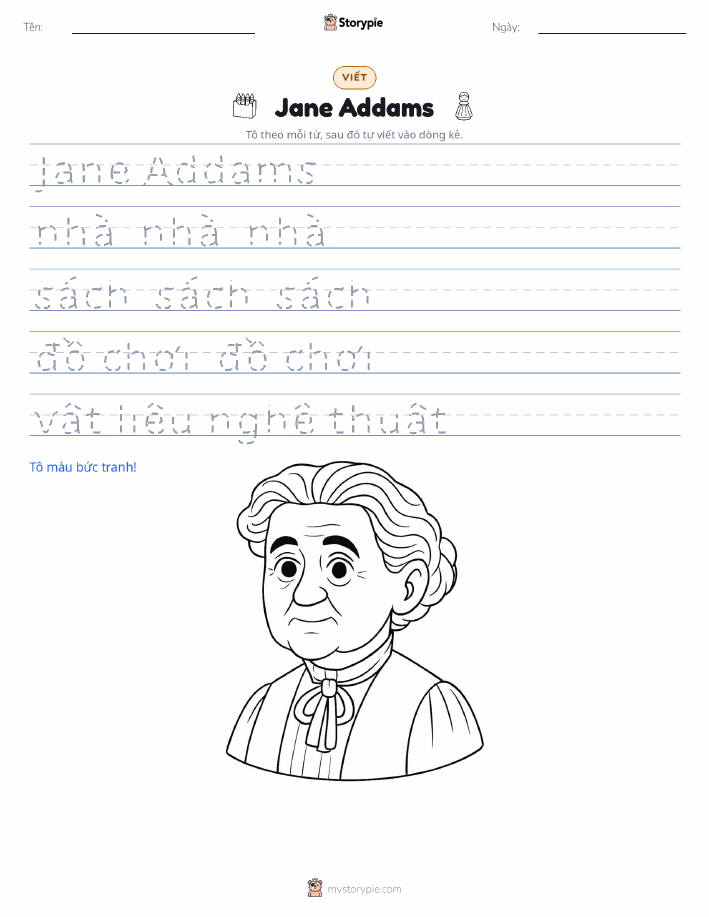 Tên:
Storypie
Ngày:
VIẾT
Jane Addams
Tô theo mỗi từ, sau đó tự viết vào dòng kẻ.
Jane Addams
nhà nhà nhà
sách sách sách
đồ chơi đồ chơi
vật liệu nghệ thuật
Tô màu bức tranh!
mystorypie.com